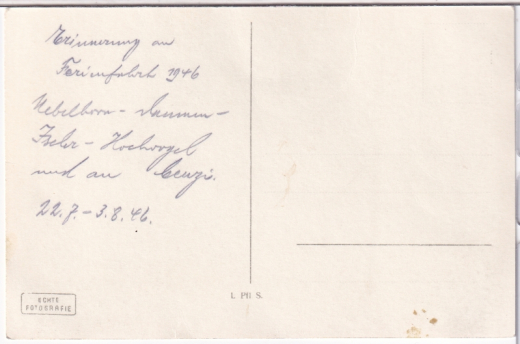 Erinnerung an
Ferienfahrt 1946
Nebelhorn - Daumen -
Iseler - Hochvogel
und an Cenzi.
22.7. - 3.8.46.
ECHTE
FOTOGRAFIE
I. PH. S.